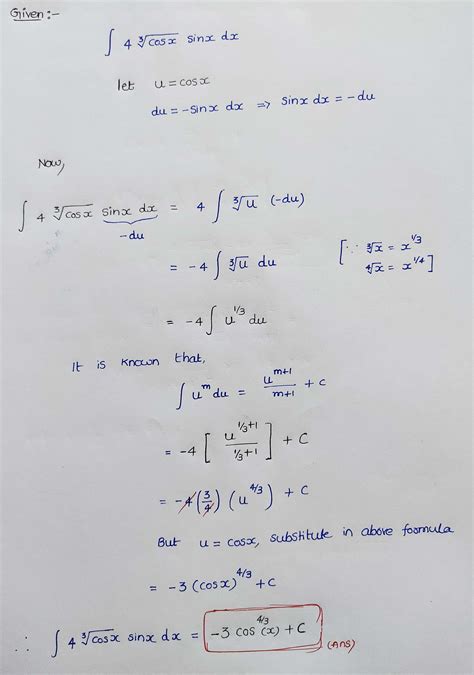 Given :-
∫ 4 ∛cosx sinx dx
let u = cosx
du = -sinx dx ⇒ sinx dx = -du
Now,
∫ 4 ∛cosx sinx dx = 4 ∫ ∛u (-du)
-du
= -4 ∫ ∛u du [∵ ∛x = x^1/3
∜x = x^1/4]
= -4 ∫ u^1/3 du
It is known that,
∫ u^m du = u^m+1 / m+1 + C
= -4 [ u^1/3+1 / 1/3+1 ] + C
= -4 (3/4) (u^4/3) + C
But u = cosx, substitute in above formula
= -3 (cosx)^4/3 + C
∴ ∫ 4 ∛cosx sinx dx = -3 cos^4/3 (x) + C (Ans)